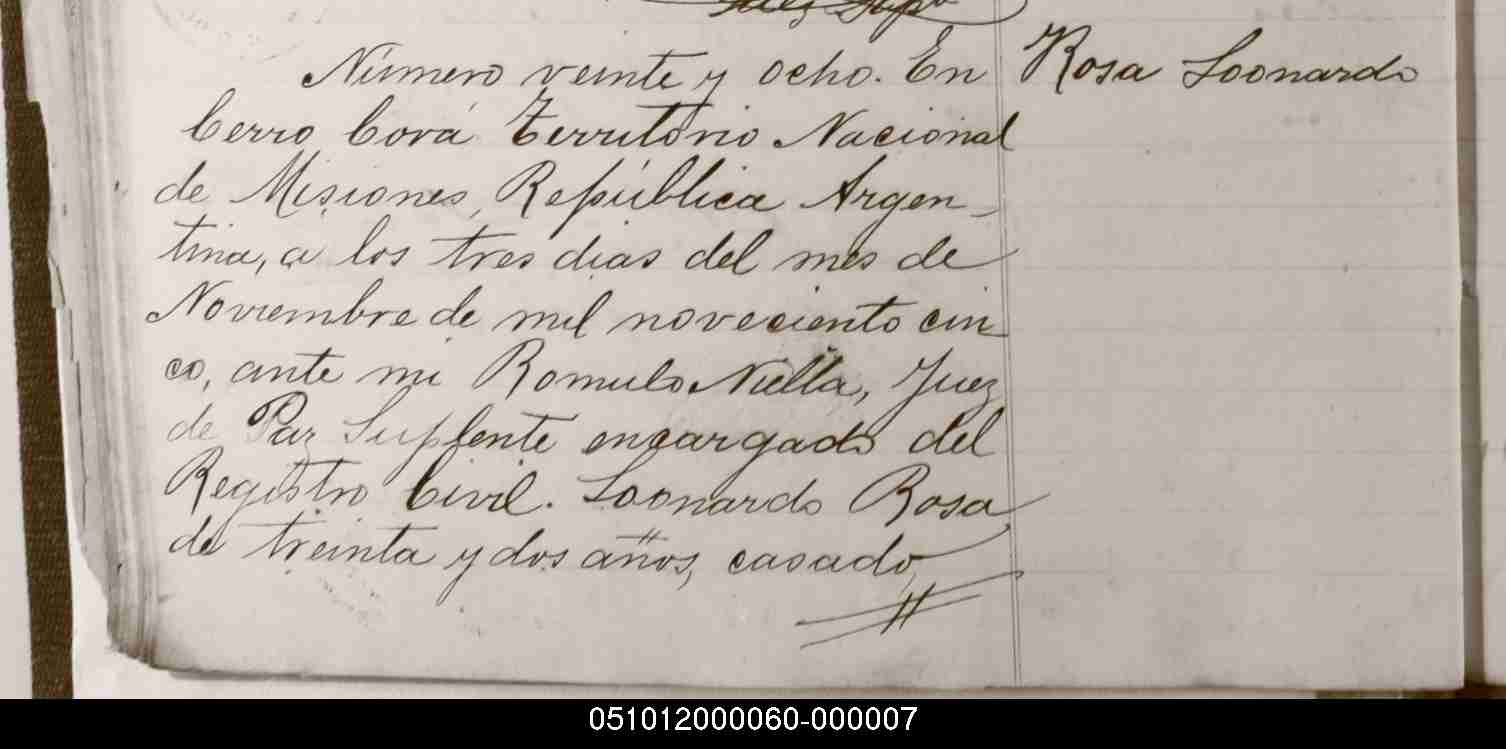 Juez Supte
Número veinte y ocho. En
Cerro Corá Territorio Nacional
de Misiones, República Argen-
tina, a los tres dias del mes de
Noviembre de mil noveciento cin
co, ante mi Romulo Niella, Juez
de Paz Suplente encargado del
Registro Civil. Loonardo Rosa
de treinta y dos años, casado,
Rosa Loonardo
051012000060-000007